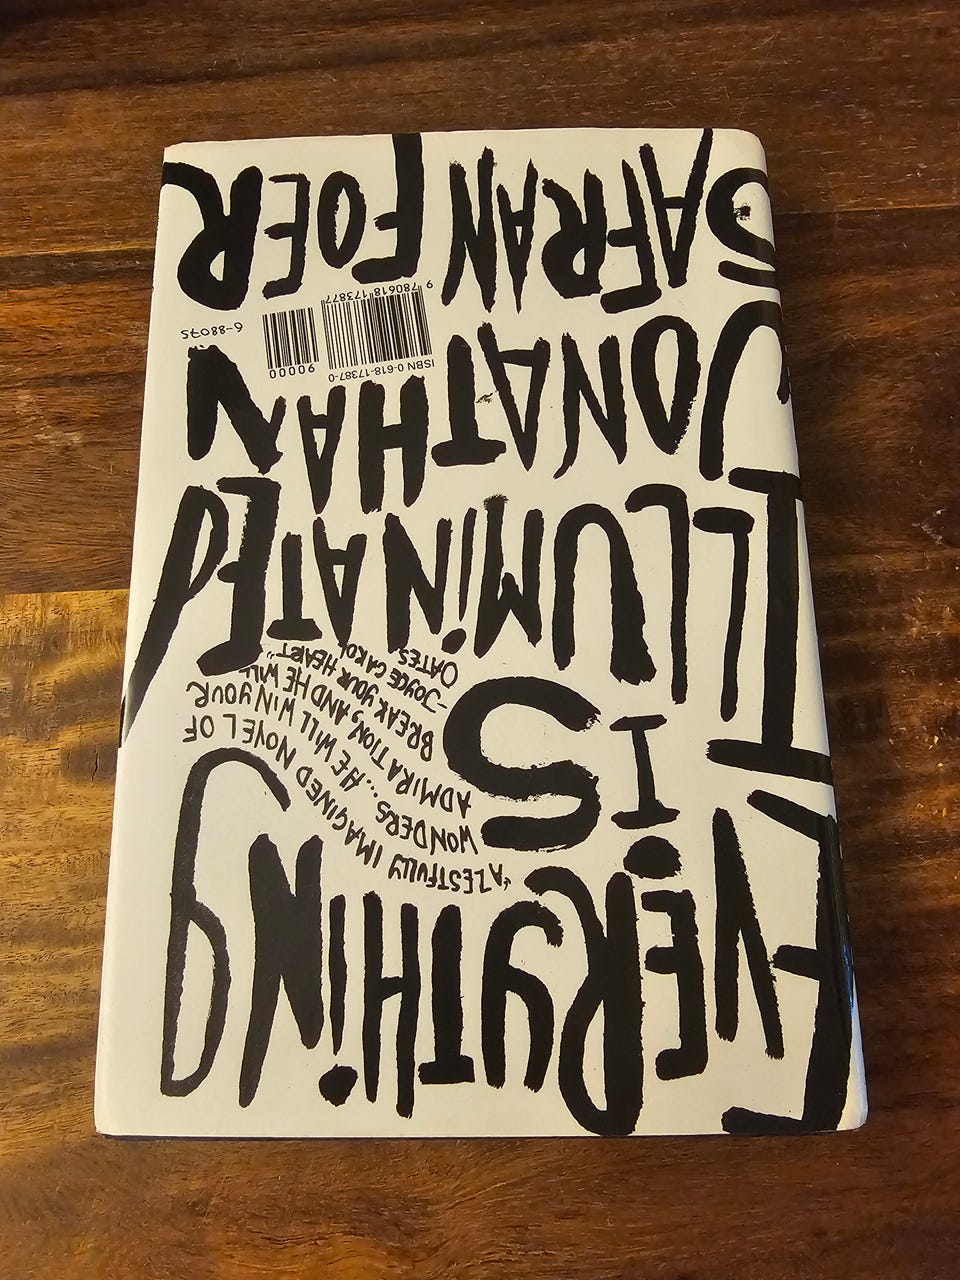 EVERYTHING
IS
"A ZESTFULLY IMAGINED NOVEL OF
WONDERS... HE WILL WIN YOUR
ADMIRATION, AND HE WILL
BREAK YOUR HEART."
-JOYCE CAROL
OATES
ILLUMINATED
JONATHAN
ISBN 0-618-17387-0
90000
9 780618 173877
6-88075
SAFRAN FOER